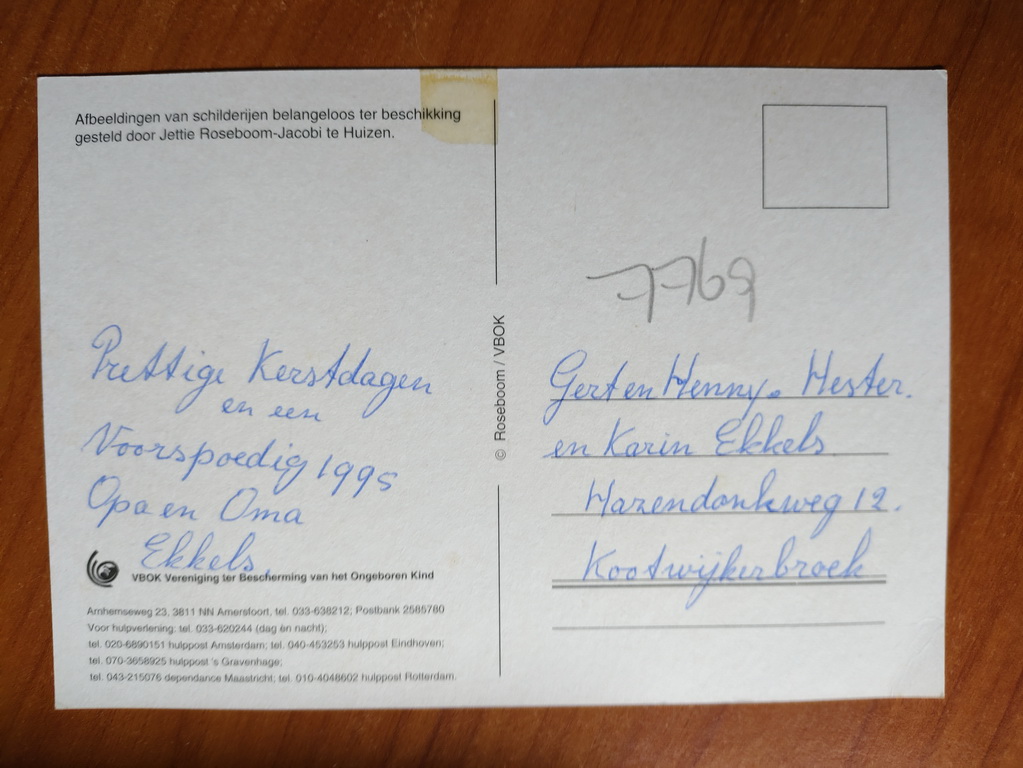 Afbeeldingen van schilderijen belangeloos ter beschikking
gesteld door Jettie Roseboom-Jacobi te Huizen.
Prettige Kerstdagen
en een
Voorspoedig 1995
Opa en Oma
Ekkels
VBOK Vereniging ter Bescherming van het Ongeboren Kind
Arnhemseweg 23, 3811 NN Amersfoort, tel. 033-638212; Postbank 2585780
Voor hulpverlening: tel. 033-620244 (dag èn nacht);
tel. 020-6890151 hulppost Amsterdam; tel. 040-453253 hulppost Eindhoven;
tel. 070-3658925 hulppost 's Gravenhage;
tel. 043-215076 dependance Maastricht; tel. 010-4048602 hulppost Rotterdam.
© Roseboom / VBOK
7769
Gert en Henny. Hester.
en Karin Ekkels
Hazendonkweg 12.
Kootwijkerbroek